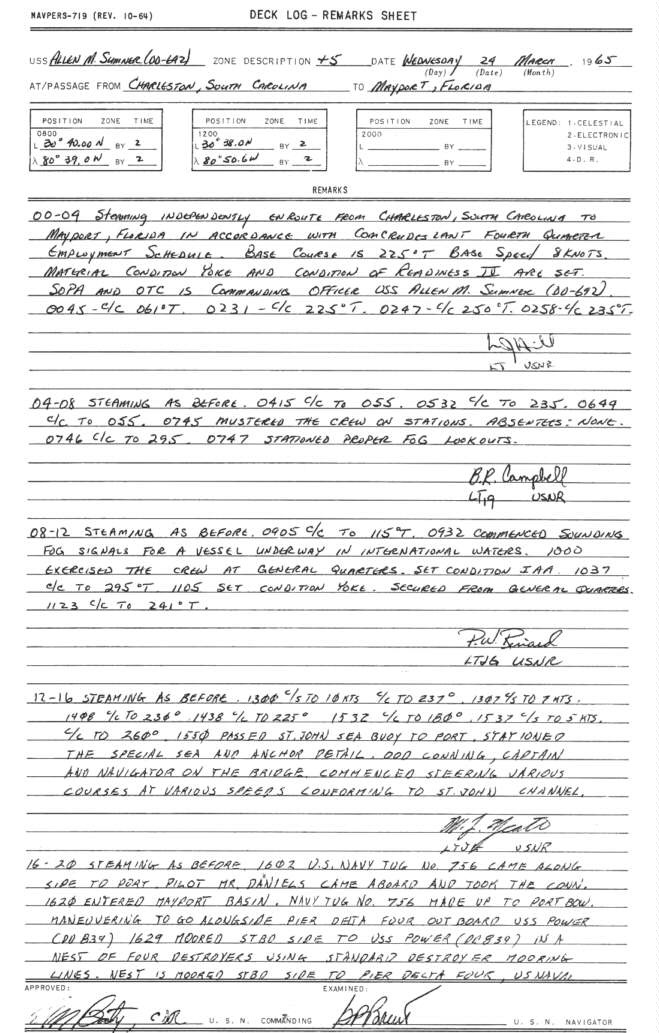 NAVPERS-719 (REV. 10-64) DECK LOG – REMARKS SHEET
USS ALLEN M. SUMNER (DD-692) ZONE DESCRIPTION +5 DATE WEDNESDAY 24 MARCH, 1965
(Day) (Date) (Month)
AT/PASSAGE FROM CHARLESTON, SOUTH CAROLINA TO MAYPORT, FLORIDA
POSITION ZONE TIME POSITION ZONE TIME POSITION ZONE TIME LEGEND: 1-CELESTIAL
0800 1200 2000 2-ELECTRONIC
L 30° 40.00 N BY 2 L 30° 38.0N BY 2 L BY 3-VISUAL
λ 80° 39.0 W BY 2 λ 80° 50.6W BY 2 λ BY 4-D. R.
REMARKS
00-04 STEAMING INDEPENDENTLY ENROUTE FROM CHARLESTON, SOUTH CAROLINA TO
MAYPORT, FLORIDA IN ACCORDANCE WITH COMCRUDESLANT FOURTH QUARTER
EMPLOYMENT SCHEDULE. BASE COURSE IS 225°T BASE SPEED 8 KNOTS.
MATERIAL CONDITION YOKE AND CONDITION OF READINESS IV ARE SET.
SOPA AND OTC IS COMMANDING OFFICER USS ALLEN M. SUMNER (DD-692).
0045 - C/C 061°T. 0231 - C/C 225°T. 0247 - C/C 250°T. 0258 - C/C 235°T.
LT USNR
04-08 STEAMING AS BEFORE. 0415 C/C TO 055. 0532 C/C TO 235. 0649
C/C TO 055. 0745 MUSTERED THE CREW ON STATIONS. ABSENTEES: NONE.
0746 C/C TO 295. 0747 STATIONED PROPER FOG LOOKOUTS.
B.R. Campbell
LTJG USNR
08-12 STEAMING AS BEFORE. 0905 C/C TO 115°T. 0932 COMMENCED SOUNDING
FOG SIGNALS FOR A VESSEL UNDERWAY IN INTERNATIONAL WATERS. 1000
EXERCISED THE CREW AT GENERAL QUARTERS. SET CONDITION IAA. 1037
C/C TO 295°T. 1105 SET CONDITION YOKE. SECURED FROM GENERAL QUARTERS.
1123 C/C TO 241°T.
P.W.
LTJG USNR
12-16 STEAMING AS BEFORE. 1300 C/S TO 10 KTS C/C TO 237°. 1307 C/S TO 7 KTS.
1408 C/C TO 230°. 1438 C/C TO 225° 1532 C/C TO 180°. 1537 C/S TO 5 KTS.
C/C TO 260°. 1550 PASSED ST. JOHN SEA BUOY TO PORT. STATIONED
THE SPECIAL SEA AND ANCHOR DETAIL. OOD CONNING, CAPTAIN
AND NAVIGATOR ON THE BRIDGE. COMMENCED STEERING VARIOUS
COURSES AT VARIOUS SPEEDS CONFORMING TO ST. JOHN CHANNEL.
M.J.
LTJG USNR
16-20 STEAMING AS BEFORE. 1602 U.S. NAVY TUG No. 756 CAME ALONG
SIDE TO PORT. PILOT MR. DANIELS CAME ABOARD AND TOOK THE CONN.
1620 ENTERED MAYPORT BASIN. NAVY TUG NO. 756 MADE UP TO PORT BOW.
MANEUVERING TO GO ALONGSIDE PIER DELTA FOUR OUT BOARD USS POWER
(DD 839) 1629 MOORED STBD SIDE TO USS POWER (DD 839) IN A
NEST OF FOUR DESTROYERS USING STANDARD DESTROYER MOORING
LINES. NEST IS MOORED STBD SIDE TO PIER DELTA FOUR, US NAVAL
APPROVED: EXAMINED:
CDR U. S. N. COMMANDING U. S. N. NAVIGATOR